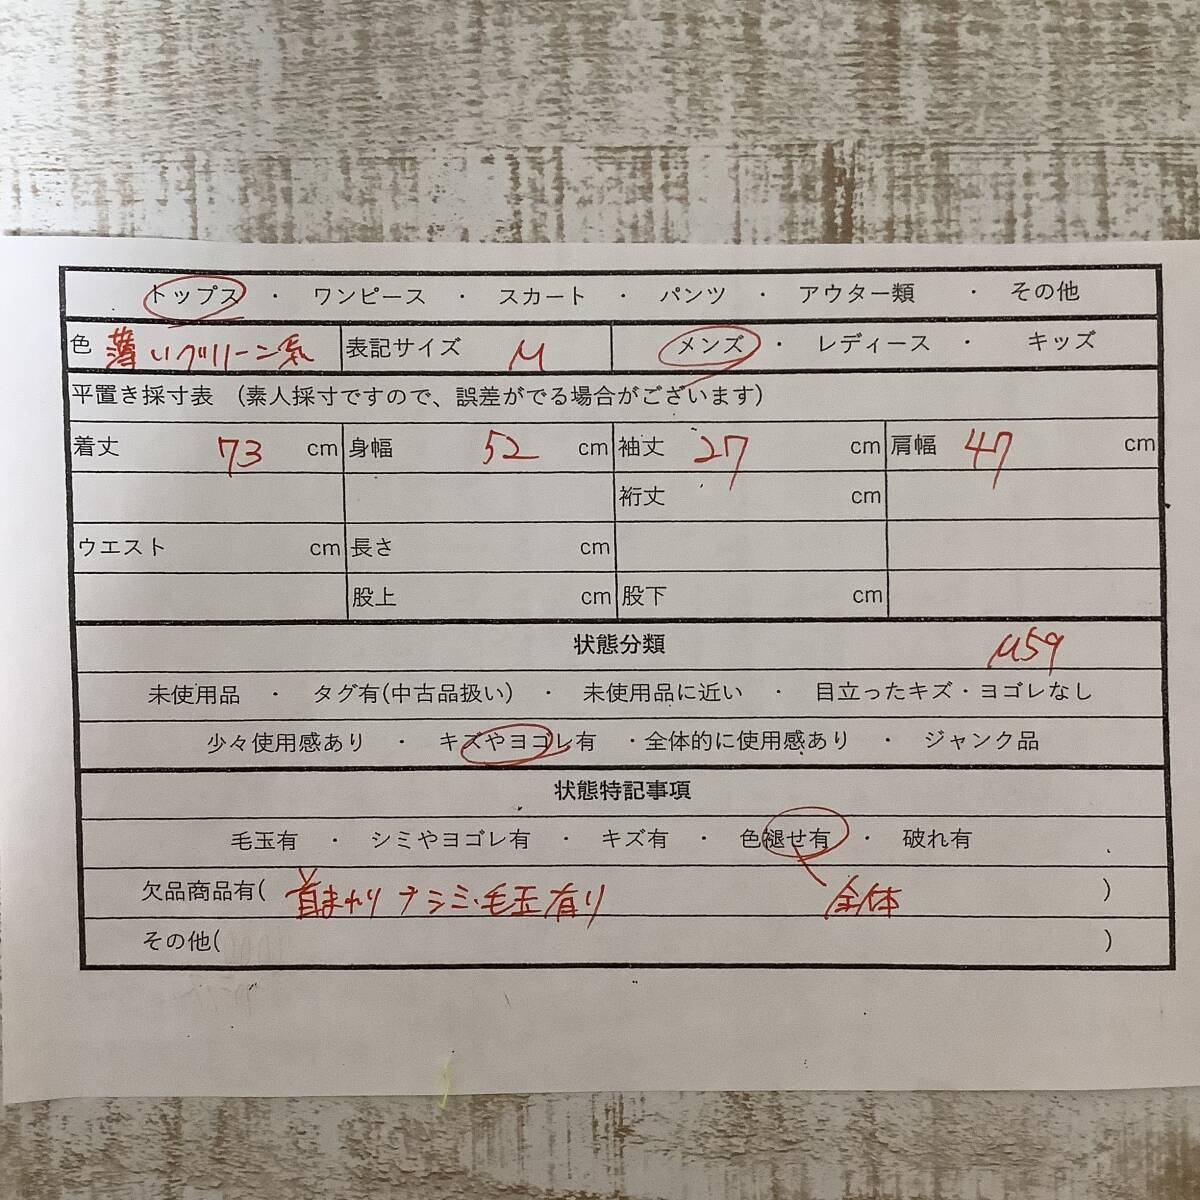 トップス ・ ワンピース ・ スカート ・ パンツ ・ アウター類 ・ その他
色 薄いグリーン系 表記サイズ M メンズ ・ レディース ・ キッズ
平置き採寸表 (素人採寸ですので、誤差がでる場合がございます)
着丈 73 cm 身幅 52 cm 袖丈 27 cm 肩幅 47 cm
裄丈 cm
ウエスト cm 長さ cm
股上 cm 股下 cm
状態分類 M59
未使用品 ・ タグ有(中古品扱い) ・ 未使用品に近い ・ 目立ったキズ・ヨゴレなし
少々使用感あり ・ キズやヨゴレ有 ・全体的に使用感あり ・ ジャンク品
状態特記事項
毛玉有 ・ シミやヨゴレ有 ・ キズ有 ・ 色褪せ有 ・ 破れ有
欠品商品有( 首まわり シミ・毛玉有り 全体 )
その他( )